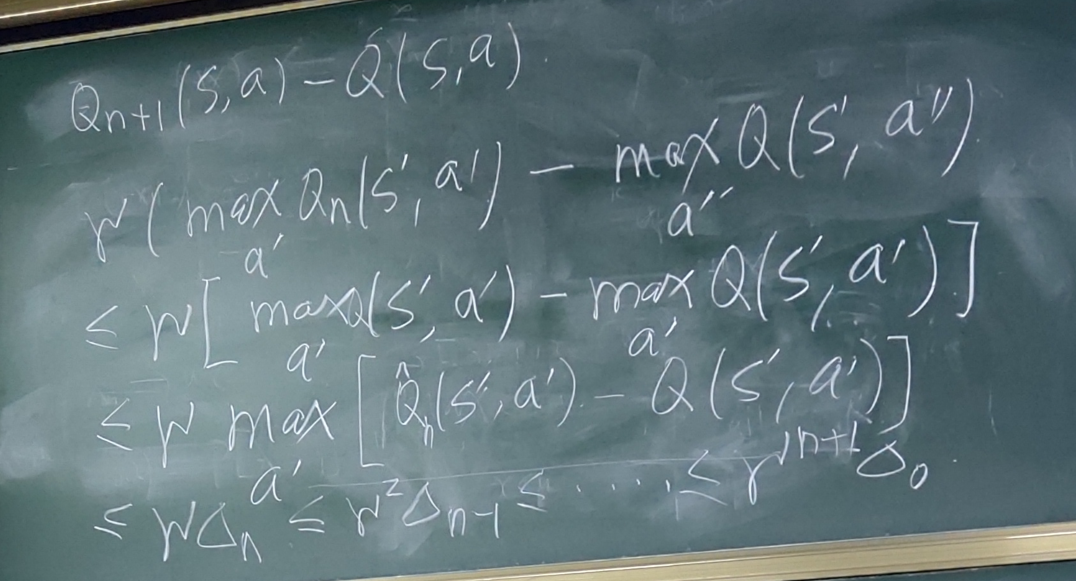 Q_{n+1}(s,a) - Q(s,a)
γ(max_{a'} Q_n(s',a') - max_{a''} Q(s',a'')
≤ γ[max_{a'} Q(s',a') - max_{a'} Q(s',a')]
≤ γ max_{a'} [Q̂_n(s',a') - Q(s',a')]
≤ γΔ_n ≤ γ²Δ_{n-1} ≤ ..... ≤ γ^{n+1}Δ_0